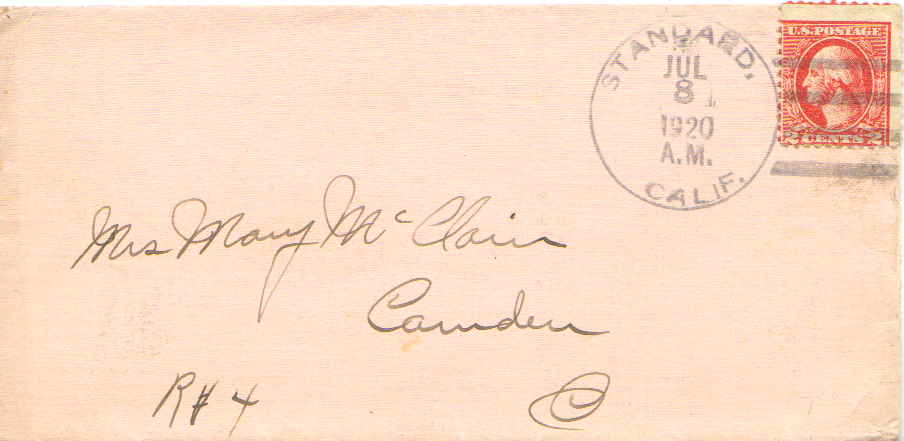 STANDARD,
JUL
8
1920
A.M.
CALIF.
U.S. POSTAGE
2 CENTS 2
Mrs Mary McClain
Camden
R#4 O